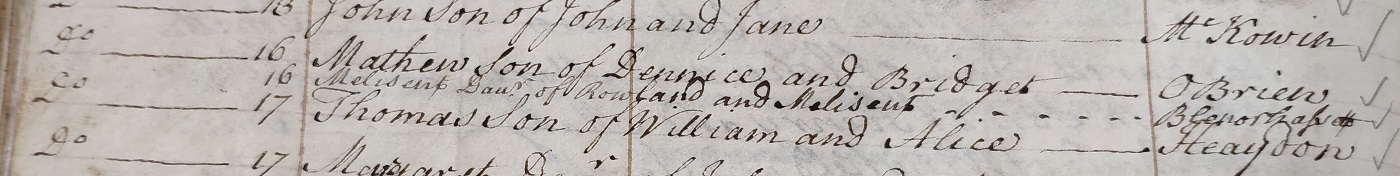 18 John Son of John and Jane Mc Kowin
Do 16 Mathew Son of Dennice and Bridget OBrien
16 Melisent Daur of Rowland and Melisent Blenorhassett
Do 17 Thomas Son of William and Alice Heaydon
Do 17 Margaret Daur of